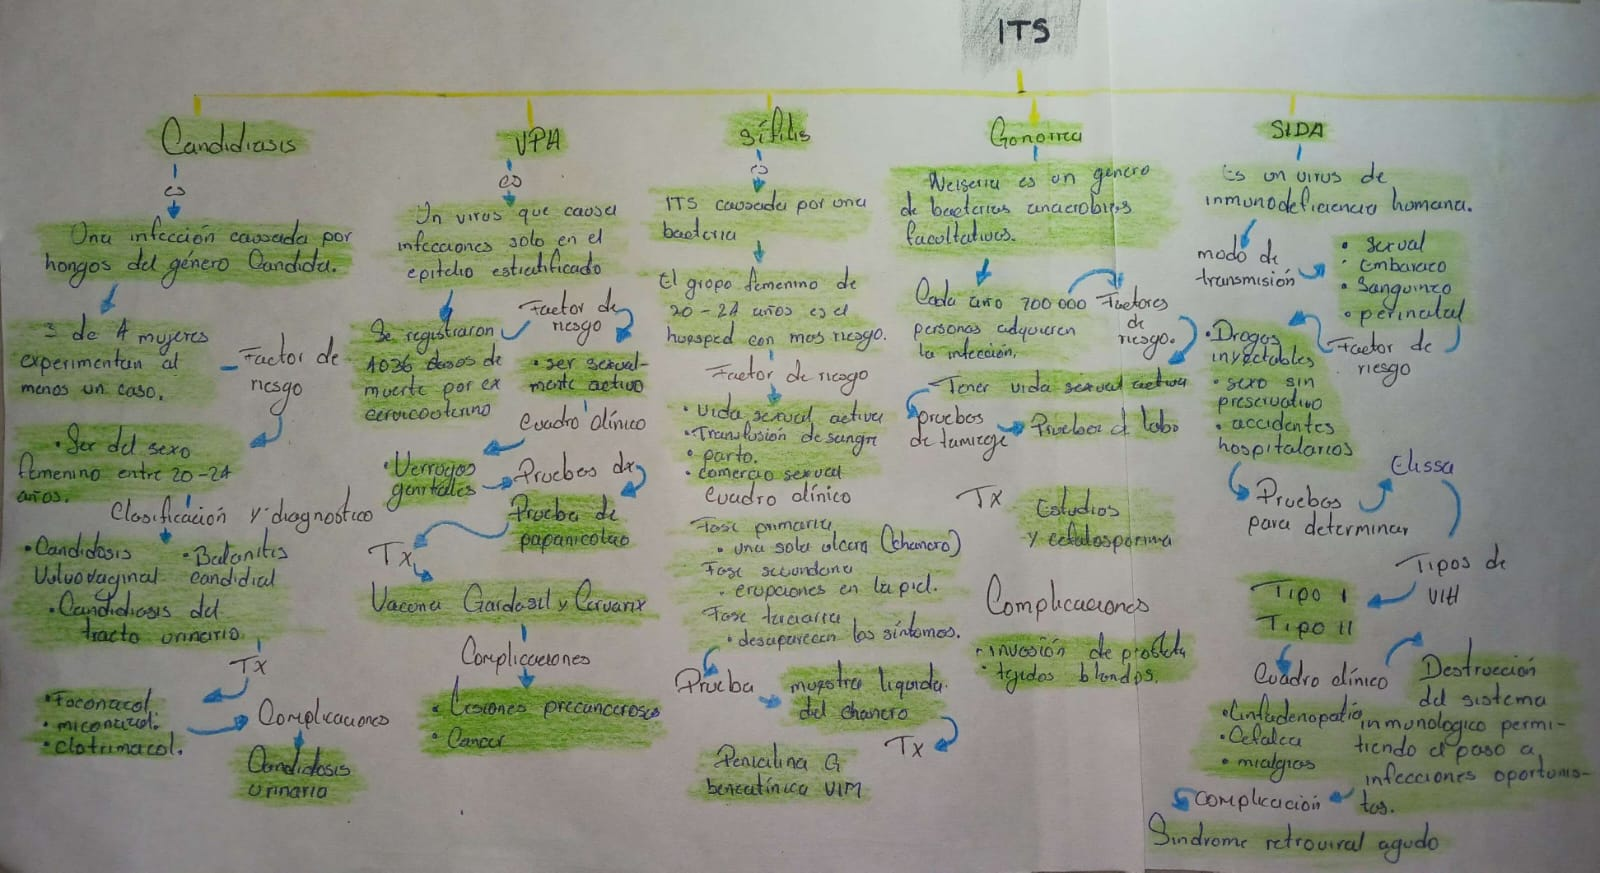 ITS
Candidiasis
es
Una infección caussada por
hongos del género Candida.
3 de 4 mujeres
experimentan al
menos un caso.
Factor de
riesgo
• Ser del sexo
femenino entre 20-24
años.
Clasificación y diagnostico
• Candidosis
Vulvovaginal
• Balanitis
candidial
• Candidiasis del
tracto urinario
Tx
• Foconacol.
• miconazol.
• clotrimacol.
Complicaciones
Candidosis
urinaria
VPH
es
Un virus que causa
infecciones solo en el
epitelio estratificado
Se registraron
4036 casos de
muerte por
cervicouterino
Factor de
riesgo
• ser sexual-
mente activo
Cuadro clínico
• Verrugas
genitales
Pruebas dx
Prueba de
papanicolao
Tx
Vacona Gardasil y Cervarix
Complicaciones
• Lesiones precancerosas
• Cancer
Sífilis
es
ITS caussada por una
bacteria
El grupo femenino de
20-24 años es el
huesped con mas riesgo.
Factor de riesgo
• vida sexual activa
• Transfusión de sangre
• parto.
• comercio sexual
Cuadro clínico
Fase primaria
• una sola ulcera (chancro)
Fase secundaria
• erupciones en la piel.
Fase terciaria
• desaparecen los síntomas.
Prueba
muestra liquida
del chancro
Tx
Penicilina G
benzatínica VIM
Gonorrea
Neisseria es un genero
de bacterias anaerobias
facultativas.
Cada año 700 000
personas adquieren
la infección.
Factores
de
riesgo.
Tener vida sexual activa
pruebas
de tamizage
Pruebas d labo
Tx
Estudios
y cefalosporima
Complicaciones
• Invasión de prostata
• tejidos blandos.
SIDA
Es un virus de
inmunodeficiencia homana.
modo de
transmisión
• sexual
• Embarazo
• sanguineo
• perinatal
Factor de
riesgo
• Drogas
inyectables
• sexo sin
preservativo
• accidentes
hospitalarios
Pruebas
para determinar
Elissa
Tipos de
VIH
Tipo I
Tipo II
Cuadro clínico
• Linfadenopatia
• Cefalea
• mialgias
Destrucción
del sistema
inmunologico permi-
tiendo el paso a
infecciones oportunis-
tas.
Complicación
Sindrome retroviral agudo